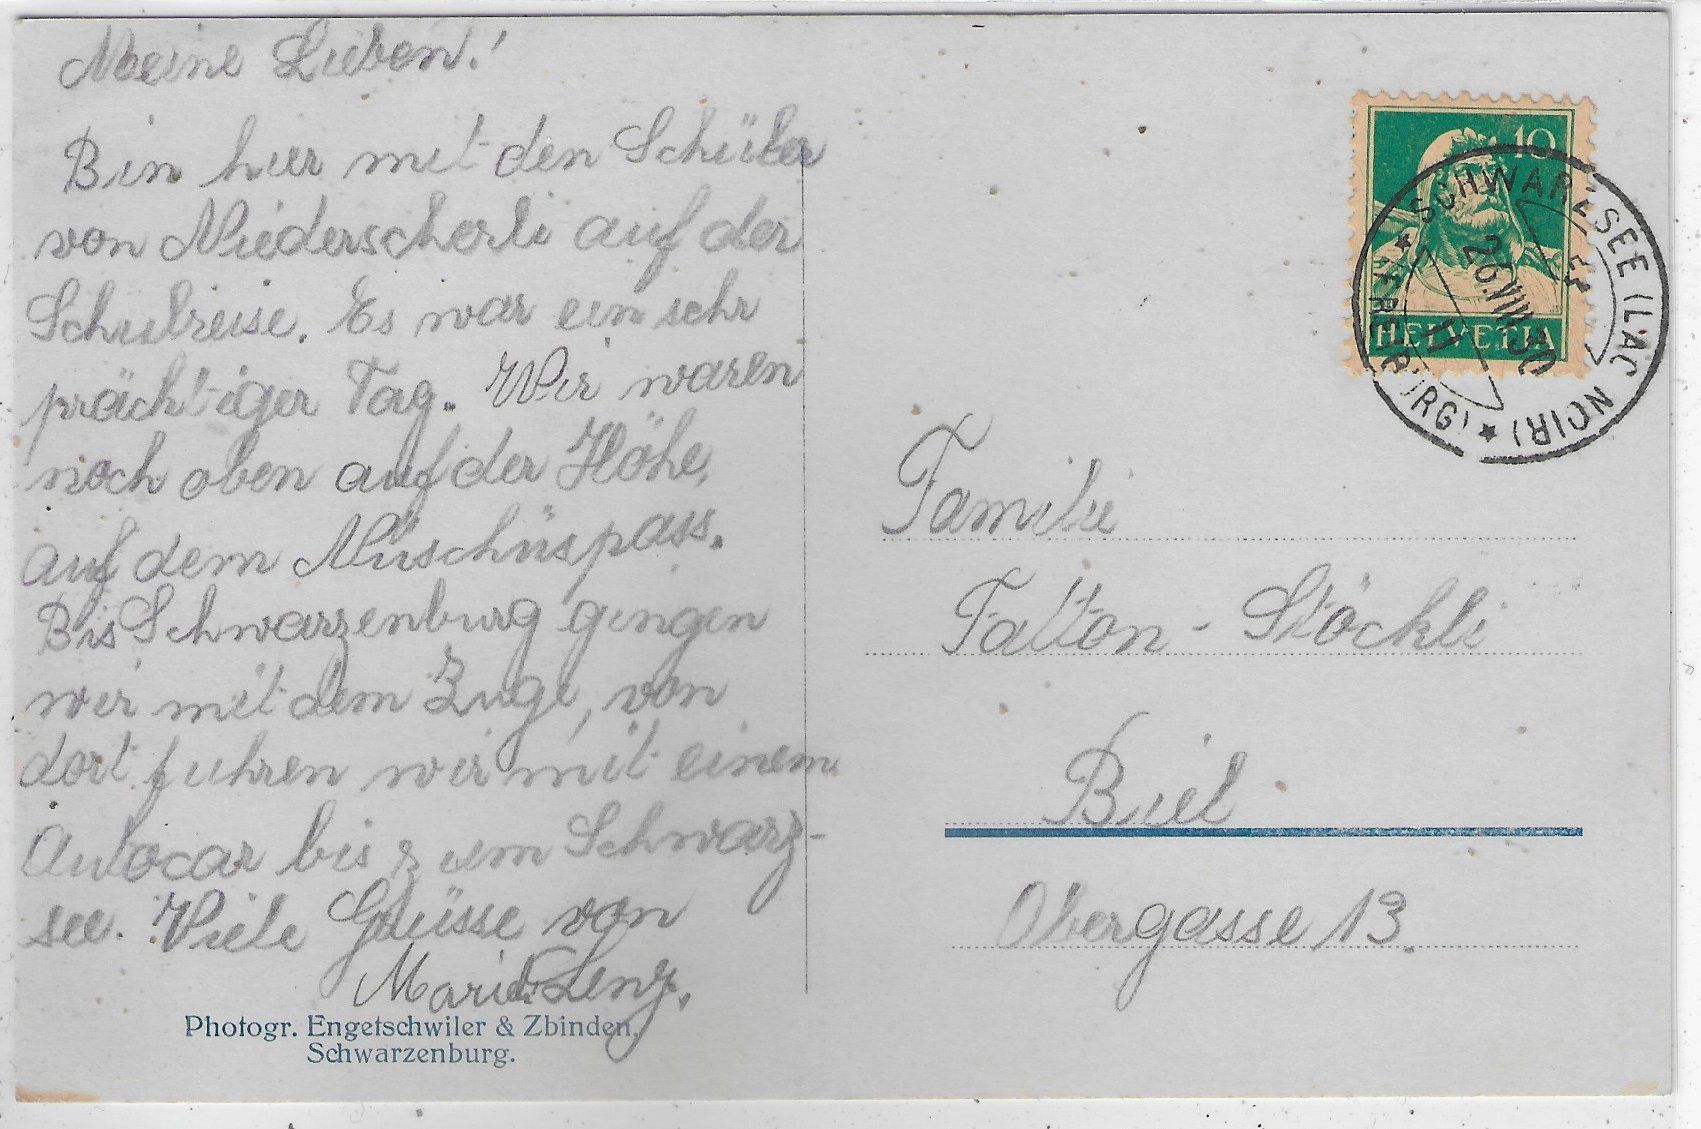 Meine Lieben!
Bin hier mit den Schüler
von Niederscherli auf der
Schulreise. Es war ein sehr
prächtiger Tag. Wir waren
noch oben auf der Höhe,
auf dem Nüschüspass.
Bis Schwarzenburg gingen
wir mit dem Zuge, von
dort fuhren wir mit einem
Autocar bis zum Schwarz-
see. Viele Grüsse von
Lenz.
Photogr. Engetschwiler & Zbinden,
Schwarzenburg.
10
HELVETIA
SCHWARZSEE (LAC NOIR)
(FREIBURG)
26.VIII.30
Familie
Falton - Stöckli
Biel
Obergasse 13.